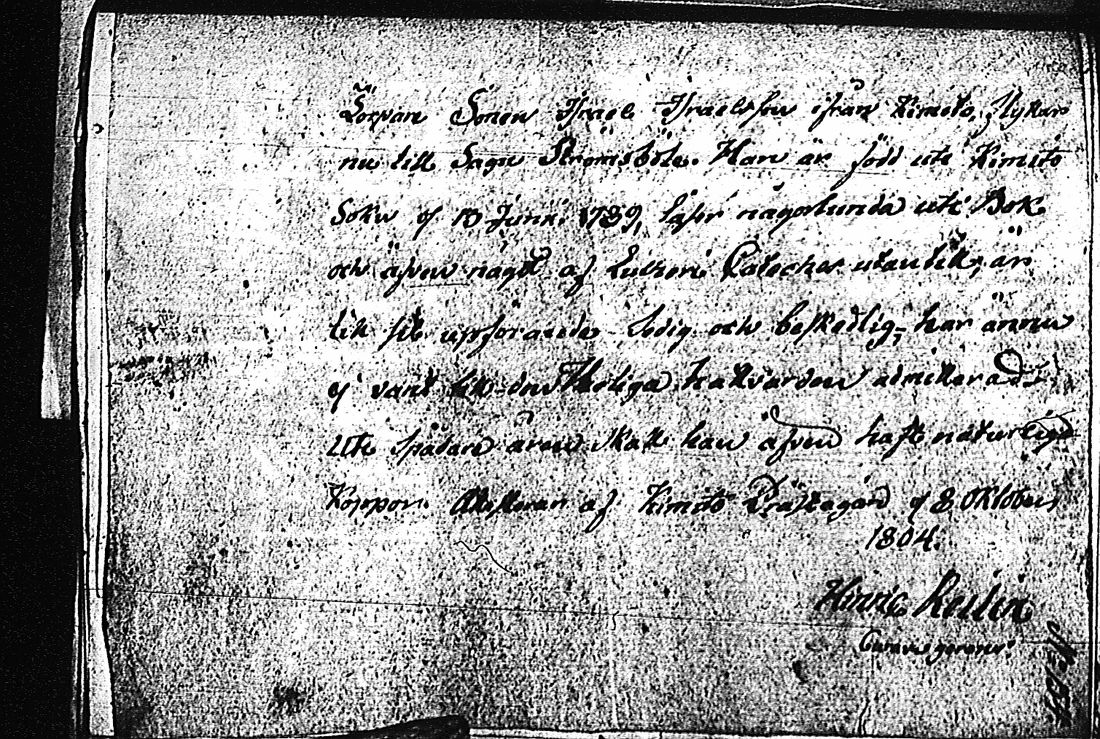 Torpare Sonen Israel Israelsson ifrån Kimito, flyttar
nu till Sagu Strömsböle. Han är född uti Kimito
Sokn d 13 Junii 1789, läser någorlunda uti Bok
och äfven något af Lutheri Cateches utantill, är
till sit uppförande sedig och beskedlig, har ännu
ej varit till den Heliga nattvarden admitterad.
Uti spädare åren skall han äfven haft naturliga
Koppor. Attesterar af Kimito Prästegård d 8 Oktober
1804.
Hinric
Curam gerens.